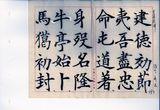 建德効節
夷吾盡忠
命屯道著
身歿名隆
牛亭始卜
馬獵初封